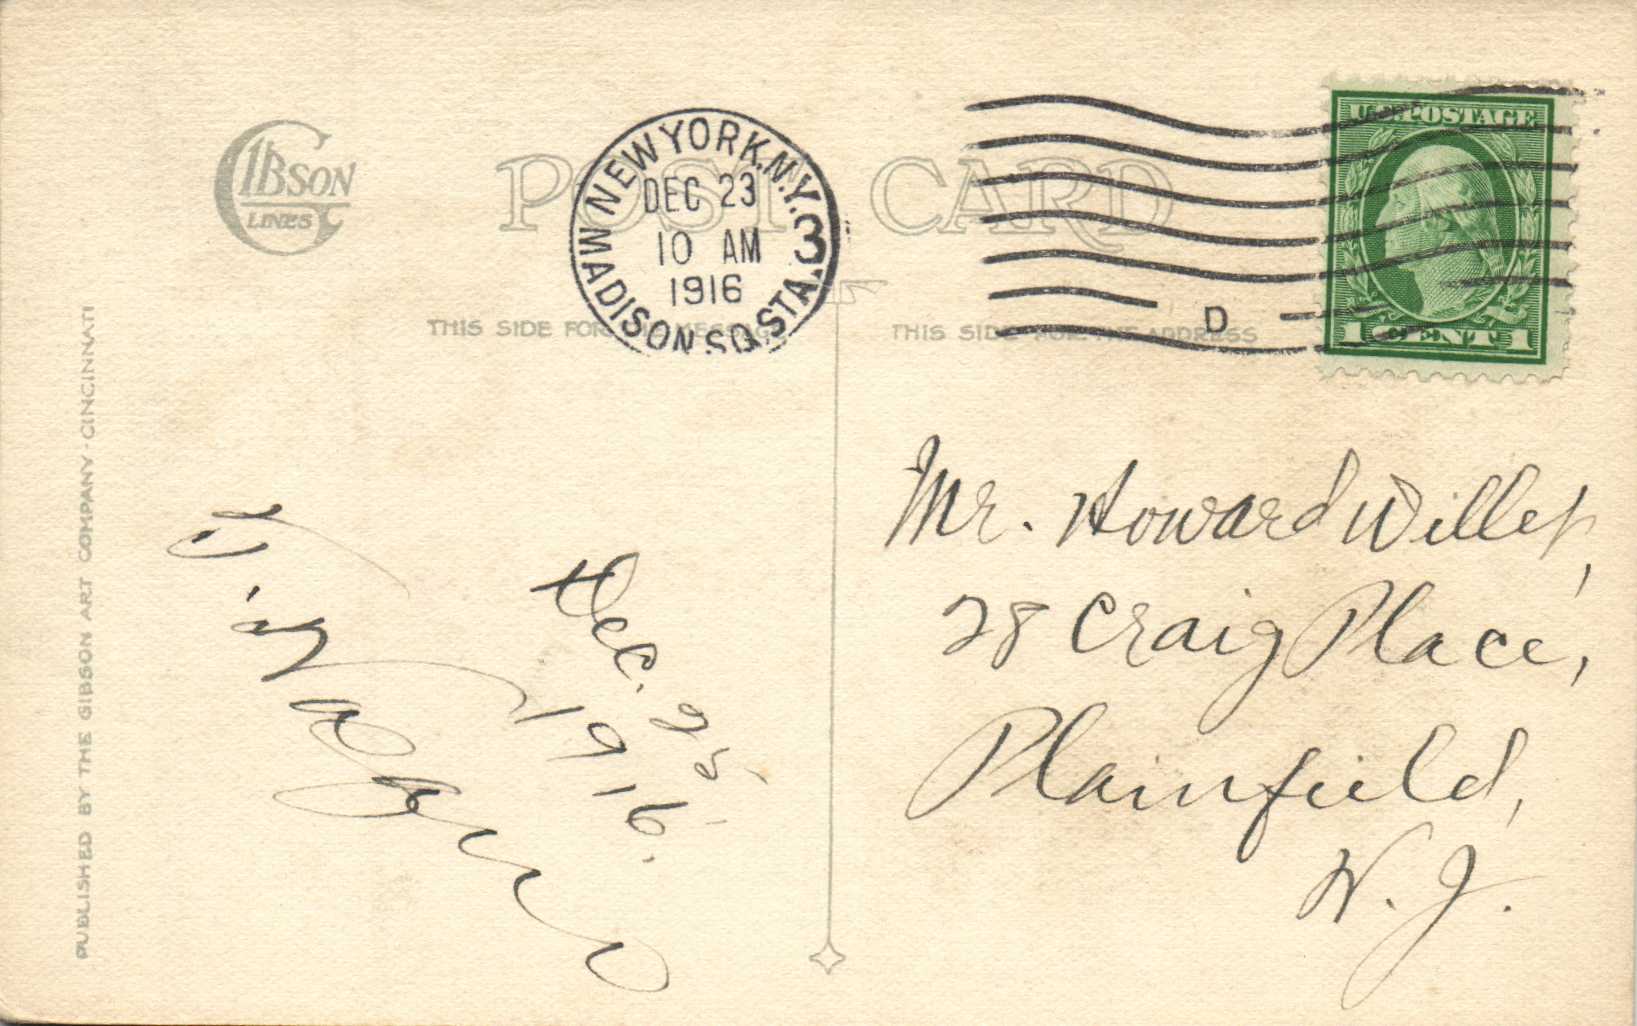 GIBSON
LINES
POST CARD
NEW YORK, N.Y. 3
MADISON SQ. STA.
DEC 23
10 AM
1916
D
U.S. POSTAGE
1 CENT 1
THIS SIDE FOR THE MESSAGE
THIS SIDE FOR THE ADDRESS
PUBLISHED BY THE GIBSON ART COMPANY - CINCINNATI
Dec. 25
1916.
Mr. Howard Willet,
28 Craig Place,
Plainfield,
N. J.